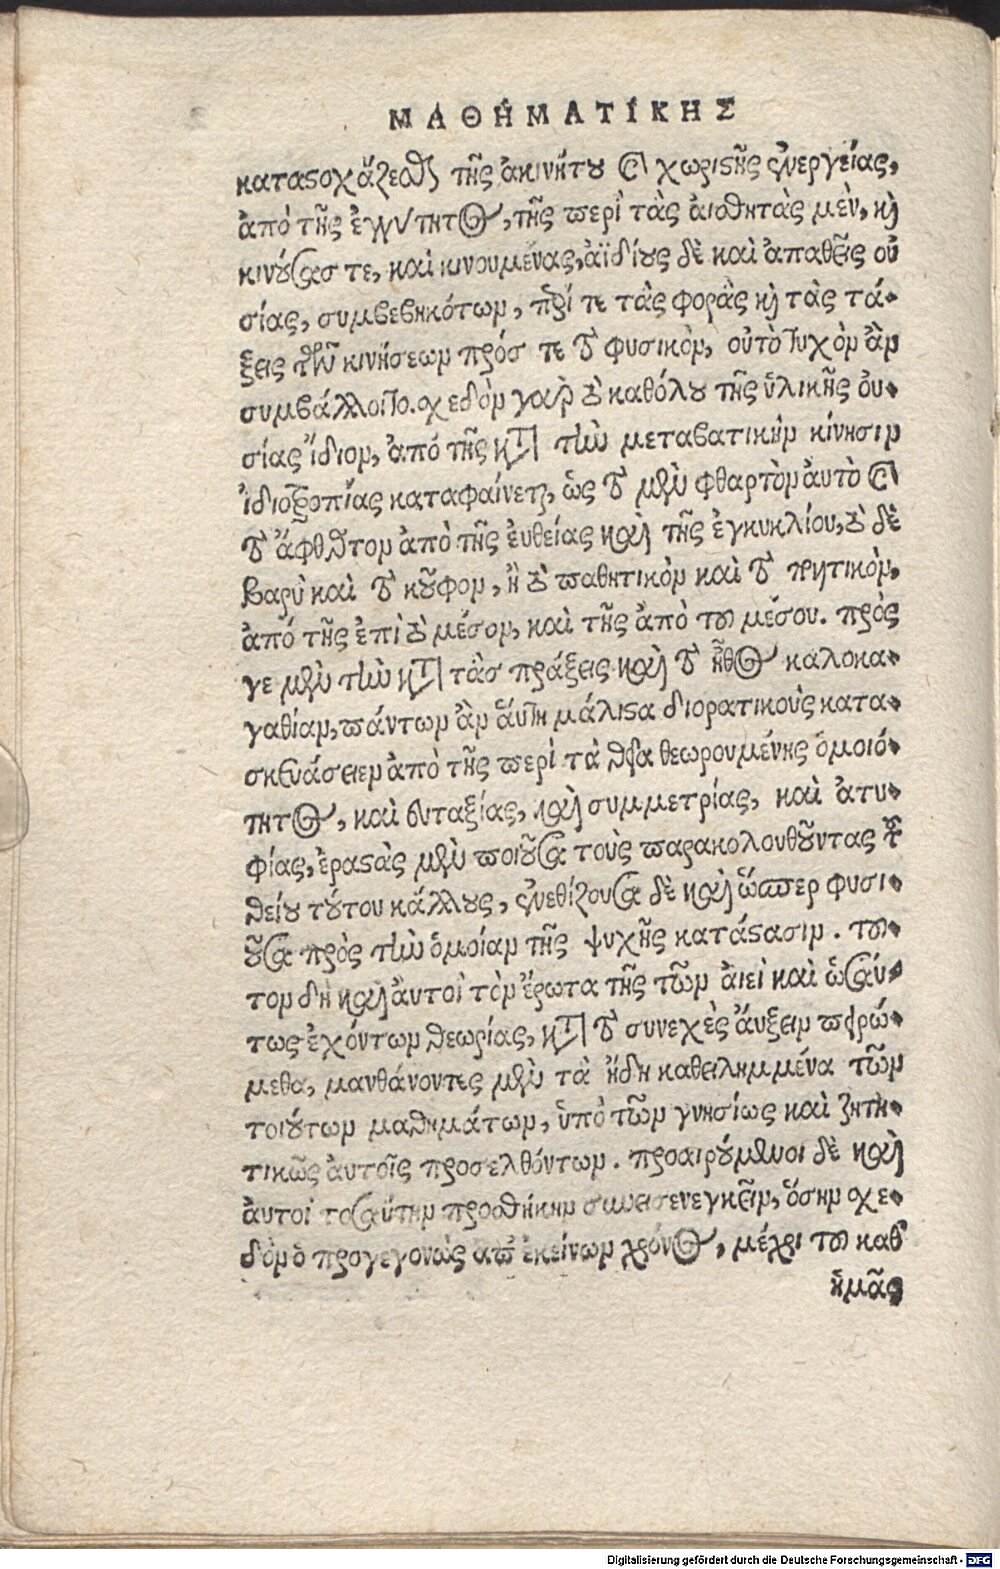 ΜΑΘΗΜΑΤΙΚΗΣ
καταστοχάζεσθαι τῆς ἀκινήτου καὶ χωριστῆς ἐνεργείας,
ἀπὸ τῆς ἐγγύτητος, τῆς περὶ τὰς αἰσθητὰς μὲν, καὶ
κινούσας τε, καὶ κινουμένας, ἀϊδίους δὲ καὶ ἀπαθεῖς οὐ
σίας, συμβεβηκότων, περί τε τὰς φορὰς καὶ τὰς τά-
ξεις τῶν κινήσεων πρός τε τὸ φυσικὸν, οὐ τὸ τυχὸν ἂν
συμβάλλοιτο. σχεδὸν γὰρ τὸ καθόλου τῆς ὑλικῆς οὐ-
σίας ἴδιον, ἀπό τῆς κατὰ τὴν μεταβατικὴν κίνησιν
ἰδιοτροπίας καταφαίνεται, ὡς τὸ μὲν φθαρτὸν ἀυτὸ καὶ
τὸ ἄφθαρτον ἀπὸ τῆς ἐυθείας καὶ τῆς ἐγκυκλίου, τὸ δὲ
βαρὺ καὶ τὸ κοῦφον, ἢ τὸ παθητικὸν καὶ τὸ ποιητικὸν,
ἀπό τῆς ἐπὶ τὸ μέσον, καὶ τῆς ἀπὸ τοῦ μέσου. πρὸς
γε μὲν τὴν κατὰ τὰσ πράξεις καὶ τὸ ἦθος καλοκα-
γαθίαν, πάντων ἂν ἅυτη μάλιστα διορατικοὺς κατα-
σκευάσειεν ἀπὸ τῆς περὶ τὰ θεῖα θεωρουμένης ὁμοιό-
τητος, καὶ ευταξίας, καὶ συμμετρίας, καὶ ἀτυ-
φίας, ἐραστὰς μὲν ποιοῦσα τοὺς παρακολουθοῦντας τοῦ
θείου τούτου κάλλους, ἐνεθίζουσα δὲ καὶ ὥσπερ φυσι-
οῦσα πρὸς τὴν ὁμοίαν τῆς ψυχῆς κατάστασιν. τοῦ-
τον δὴ καὶ ἀυτοὶ τὸν ἔρωτα τῆς τῶν ἀιεὶ καὶ ὡσαύ-
τως ἐχόντων θεωρίας, κατὰ τὸ συνεχὲς ἄυξειν πειρώ-
μεθα, μανθάνοντες μὲν τὰ ἤδη κατειλημμένα τῶν
τοιούτων μαθημάτων, ὑπὸ τῶν γνησίως καὶ ζητη-
τικῶς ἀυτοῖς προσελθόντων. προαιρούμενοι δὲ καὶ
ἀυτοί τοσαύτην προσθήκην συνεισενεγκεῖν, ὅσην σχε-
δὸν ὁ προγεγονὼς ἀπ' ἐκείνων χρόνος, μέχρι τοῦ καθ'
ἡμᾶς
Digitalisierung gefördert durch die Deutsche Forschungsgemeinschaft - DFG